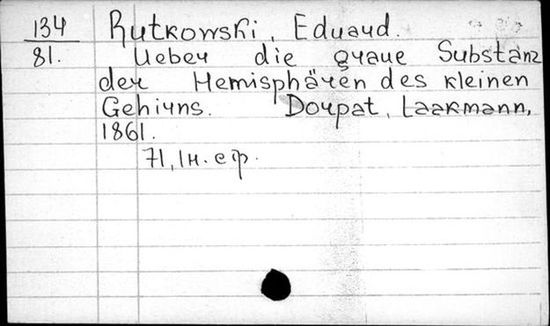 134 Rutkowski, Eduard.
81. Ueber die graue Substanz
der Hemisphären des kleinen
Gehirns. Dorpat, Laakmann,
1861.
71, 1н. стр.